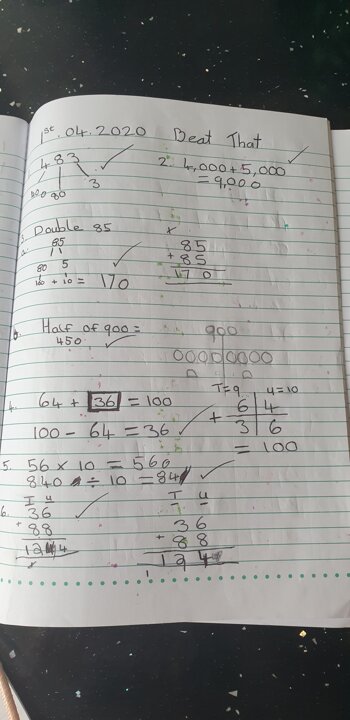 1st.04.2020 Beat That
483
400 80 3
2. 4,000 + 5,000
= 9,000
3. Double 85
a. 85
80 5
160 + 10 = 170
85
+ 85
170
b. Half of 900 =
450
900
4. 64 + 36 = 100
100 - 64 = 36
T=9 U=10
6 4
+ 3 6
= 100
5. 56 × 10 = 560
840 ÷ 10 = 84
6. T U
36
+ 88
124
T U
36
+ 88
124
1